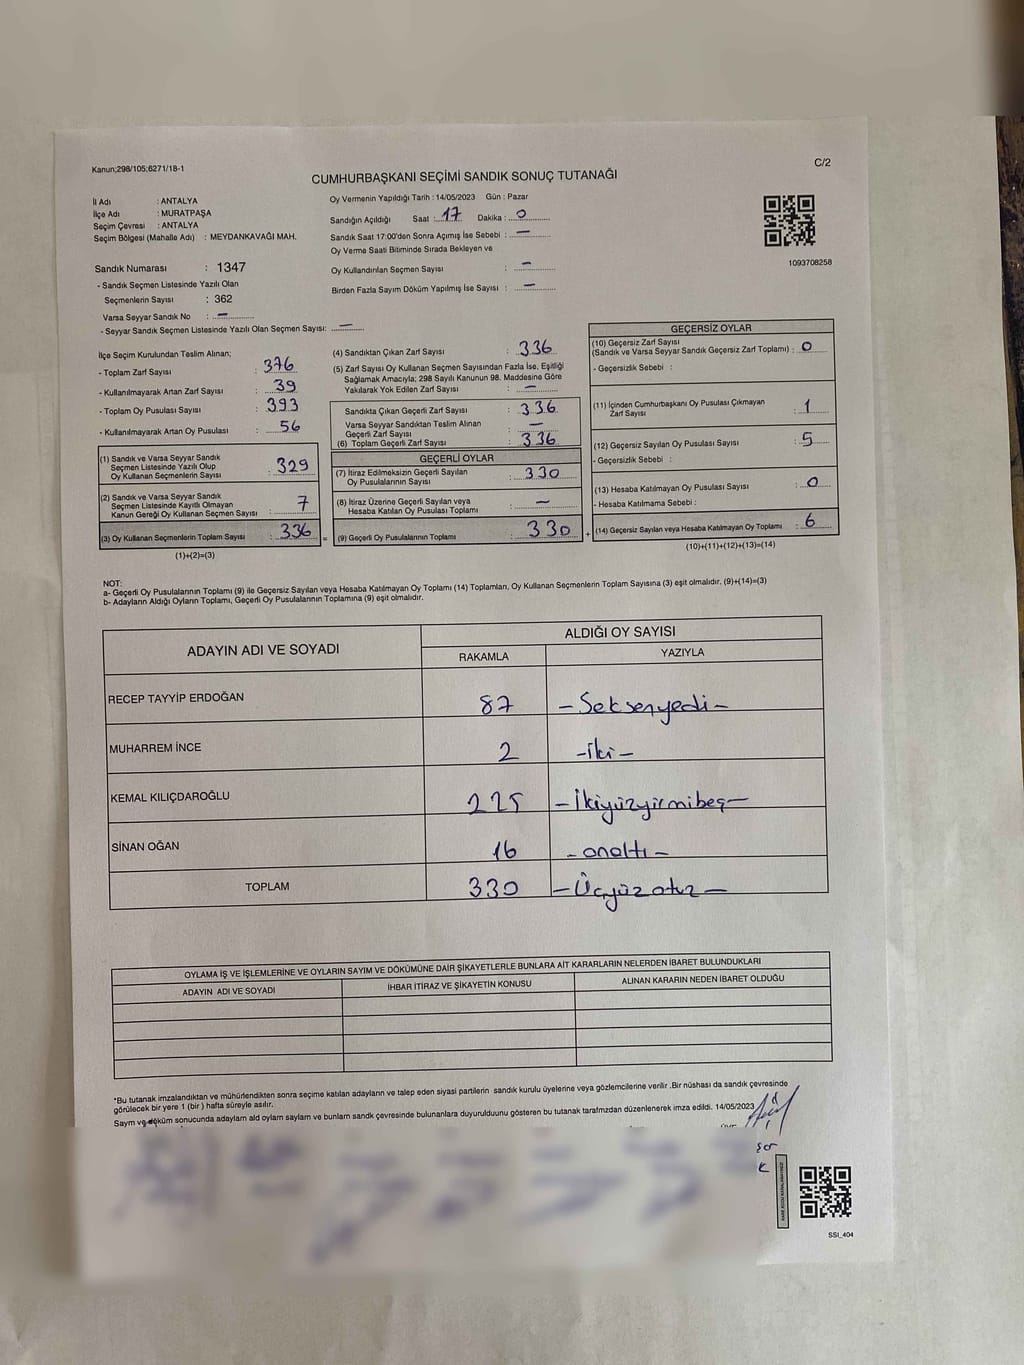 Kanun;298/105;6271/18-1
C/2
CUMHURBAŞKANI SEÇİMİ SANDIK SONUÇ TUTANAĞI
İl Adı : ANTALYA
İlçe Adı : MURATPAŞA
Seçim Çevresi : ANTALYA
Seçim Bölgesi (Mahalle Adı) : MEYDANKAVAĞI MAH.
Oy Vermenin Yapıldığı Tarih : 14/05/2023 Gün : Pazar
Sandığın Açıldığı Saat : 17 Dakika : 0
Sandık Saat 17:00'den Sonra Açımış İse Sebebi : —
Oy Verme Saati Bitiminde Sırada Bekleyen ve
Oy Kullandırılan Seçmen Sayısı : —
Birden Fazla Sayım Döküm Yapılmış İse Sayısı : —
1093708258
Sandık Numarası : 1347
- Sandık Seçmen Listesinde Yazılı Olan
Seçmenlerin Sayısı : 362
Varsa Seyyar Sandık No : —
- Seyyar Sandık Seçmen Listesinde Yazılı Olan Seçmen Sayısı: —
İlçe Seçim Kurulundan Teslim Alınan;
- Toplam Zarf Sayısı : 376
- Kullanılmayarak Artan Zarf Sayısı : 39
- Toplam Oy Pusulası Sayısı : 393
- Kullanılmayarak Artan Oy Pusulası : 56
(1) Sandık ve Varsa Seyyar Sandık
Seçmen Listesinde Yazılı Olup
Oy Kullanan Seçmenlerin Sayısı : 329
(2) Sandık ve Varsa Seyyar Sandık
Seçmen Listesinde Kayıtlı Olmayan
Kanun Gereği Oy Kullanan Seçmen Sayısı : 7
(3) Oy Kullanan Seçmenlerin Toplam Sayısı : 336
(1)+(2)=(3)
(4) Sandıktan Çıkan Zarf Sayısı : 336
(5) Zarf Sayısı Oy Kullanan Seçmen Sayısından Fazla İse, Eşitliği
Sağlamak Amacıyla; 298 Sayılı Kanunun 98. Maddesine Göre
Yakılarak Yok Edilen Zarf Sayısı : —
Sandıkta Çıkan Geçerli Zarf Sayısı : 336
Varsa Seyyar Sandıktan Teslim Alınan
Geçerli Zarf Sayısı : —
(6) Toplam Geçerli Zarf Sayısı : 336
GEÇERLİ OYLAR
(7) İtiraz Edilmeksizin Geçerli Sayılan
Oy Pusulalarının Sayısı : 330
(8) İtiraz Üzerine Geçerli Sayılan veya
Hesaba Katılan Oy Pusulası Toplamı : —
= (9) Geçerli Oy Pusulalarının Toplamı : 330
GEÇERSİZ OYLAR
(10) Geçersiz Zarf Sayısı
(Sandık ve Varsa Seyyar Sandık Geçersiz Zarf Toplamı) : 0
- Geçersizlik Sebebi :
(11) İçinden Cumhurbaşkanı Oy Pusulası Çıkmayan
Zarf Sayısı : 1
(12) Geçersiz Sayılan Oy Pusulası Sayısı : 5
- Geçersizlik Sebebi :
(13) Hesaba Katılmayan Oy Pusulası Sayısı : 0
- Hesaba Katılmama Sebebi :
+ (14) Geçersiz Sayılan veya Hesaba Katılmayan Oy Toplamı : 6
(10)+(11)+(12)+(13)=(14)
NOT:
a- Geçerli Oy Pusulalarının Toplamı (9) ile Geçersiz Sayılan veya Hesaba Katılmayan Oy Toplamı (14) Toplamları, Oy Kullanan Seçmenlerin Toplam Sayısına (3) eşit olmalıdır. (9)+(14)=(3)
b- Adayların Aldığı Oyların Toplamı, Geçerli Oy Pusulalarının Toplamına (9) eşit olmalıdır.
ADAYIN ADI VE SOYADI
ALDIĞI OY SAYISI
RAKAMLA YAZIYLA
RECEP TAYYİP ERDOĞAN 87 – Seksenyedi –
MUHARREM İNCE 2 – İki –
KEMAL KILIÇDAROĞLU 225 – İkiyüzyirmibeş –
SİNAN OĞAN 16 – onaltı –
TOPLAM 330 – Üçyüzotuz –
OYLAMA İŞ VE İŞLEMLERİNE VE OYLARIN SAYIM VE DÖKÜMÜNE DAİR ŞİKAYETLERLE BUNLARA AİT KARARLARIN NELERDEN İBARET BULUNDUKLARI
ADAYIN ADI VE SOYADI İHBAR İTİRAZ VE ŞİKAYETİN KONUSU ALINAN KARARIN NEDEN İBARET OLDUĞU
*Bu tutanak imzalandıktan ve mühürlendikten sonra seçime katılan adayların ve talep eden siyasi partilerin sandık kurulu üyelerine veya gözlemcilerine verilir .Bir nüshası da sandık çevresinde
görülecek bir yere 1 (bir ) hafta süreyle asılır.
Sayım ve döküm sonucunda adayların ald oylam saylam ve bunların sandk çevresinde bulunanlara duyurulduunu gösteren bu tutanak tarafmzdan düzenlenerek imza edildi. 14/05/2023
SSI_404